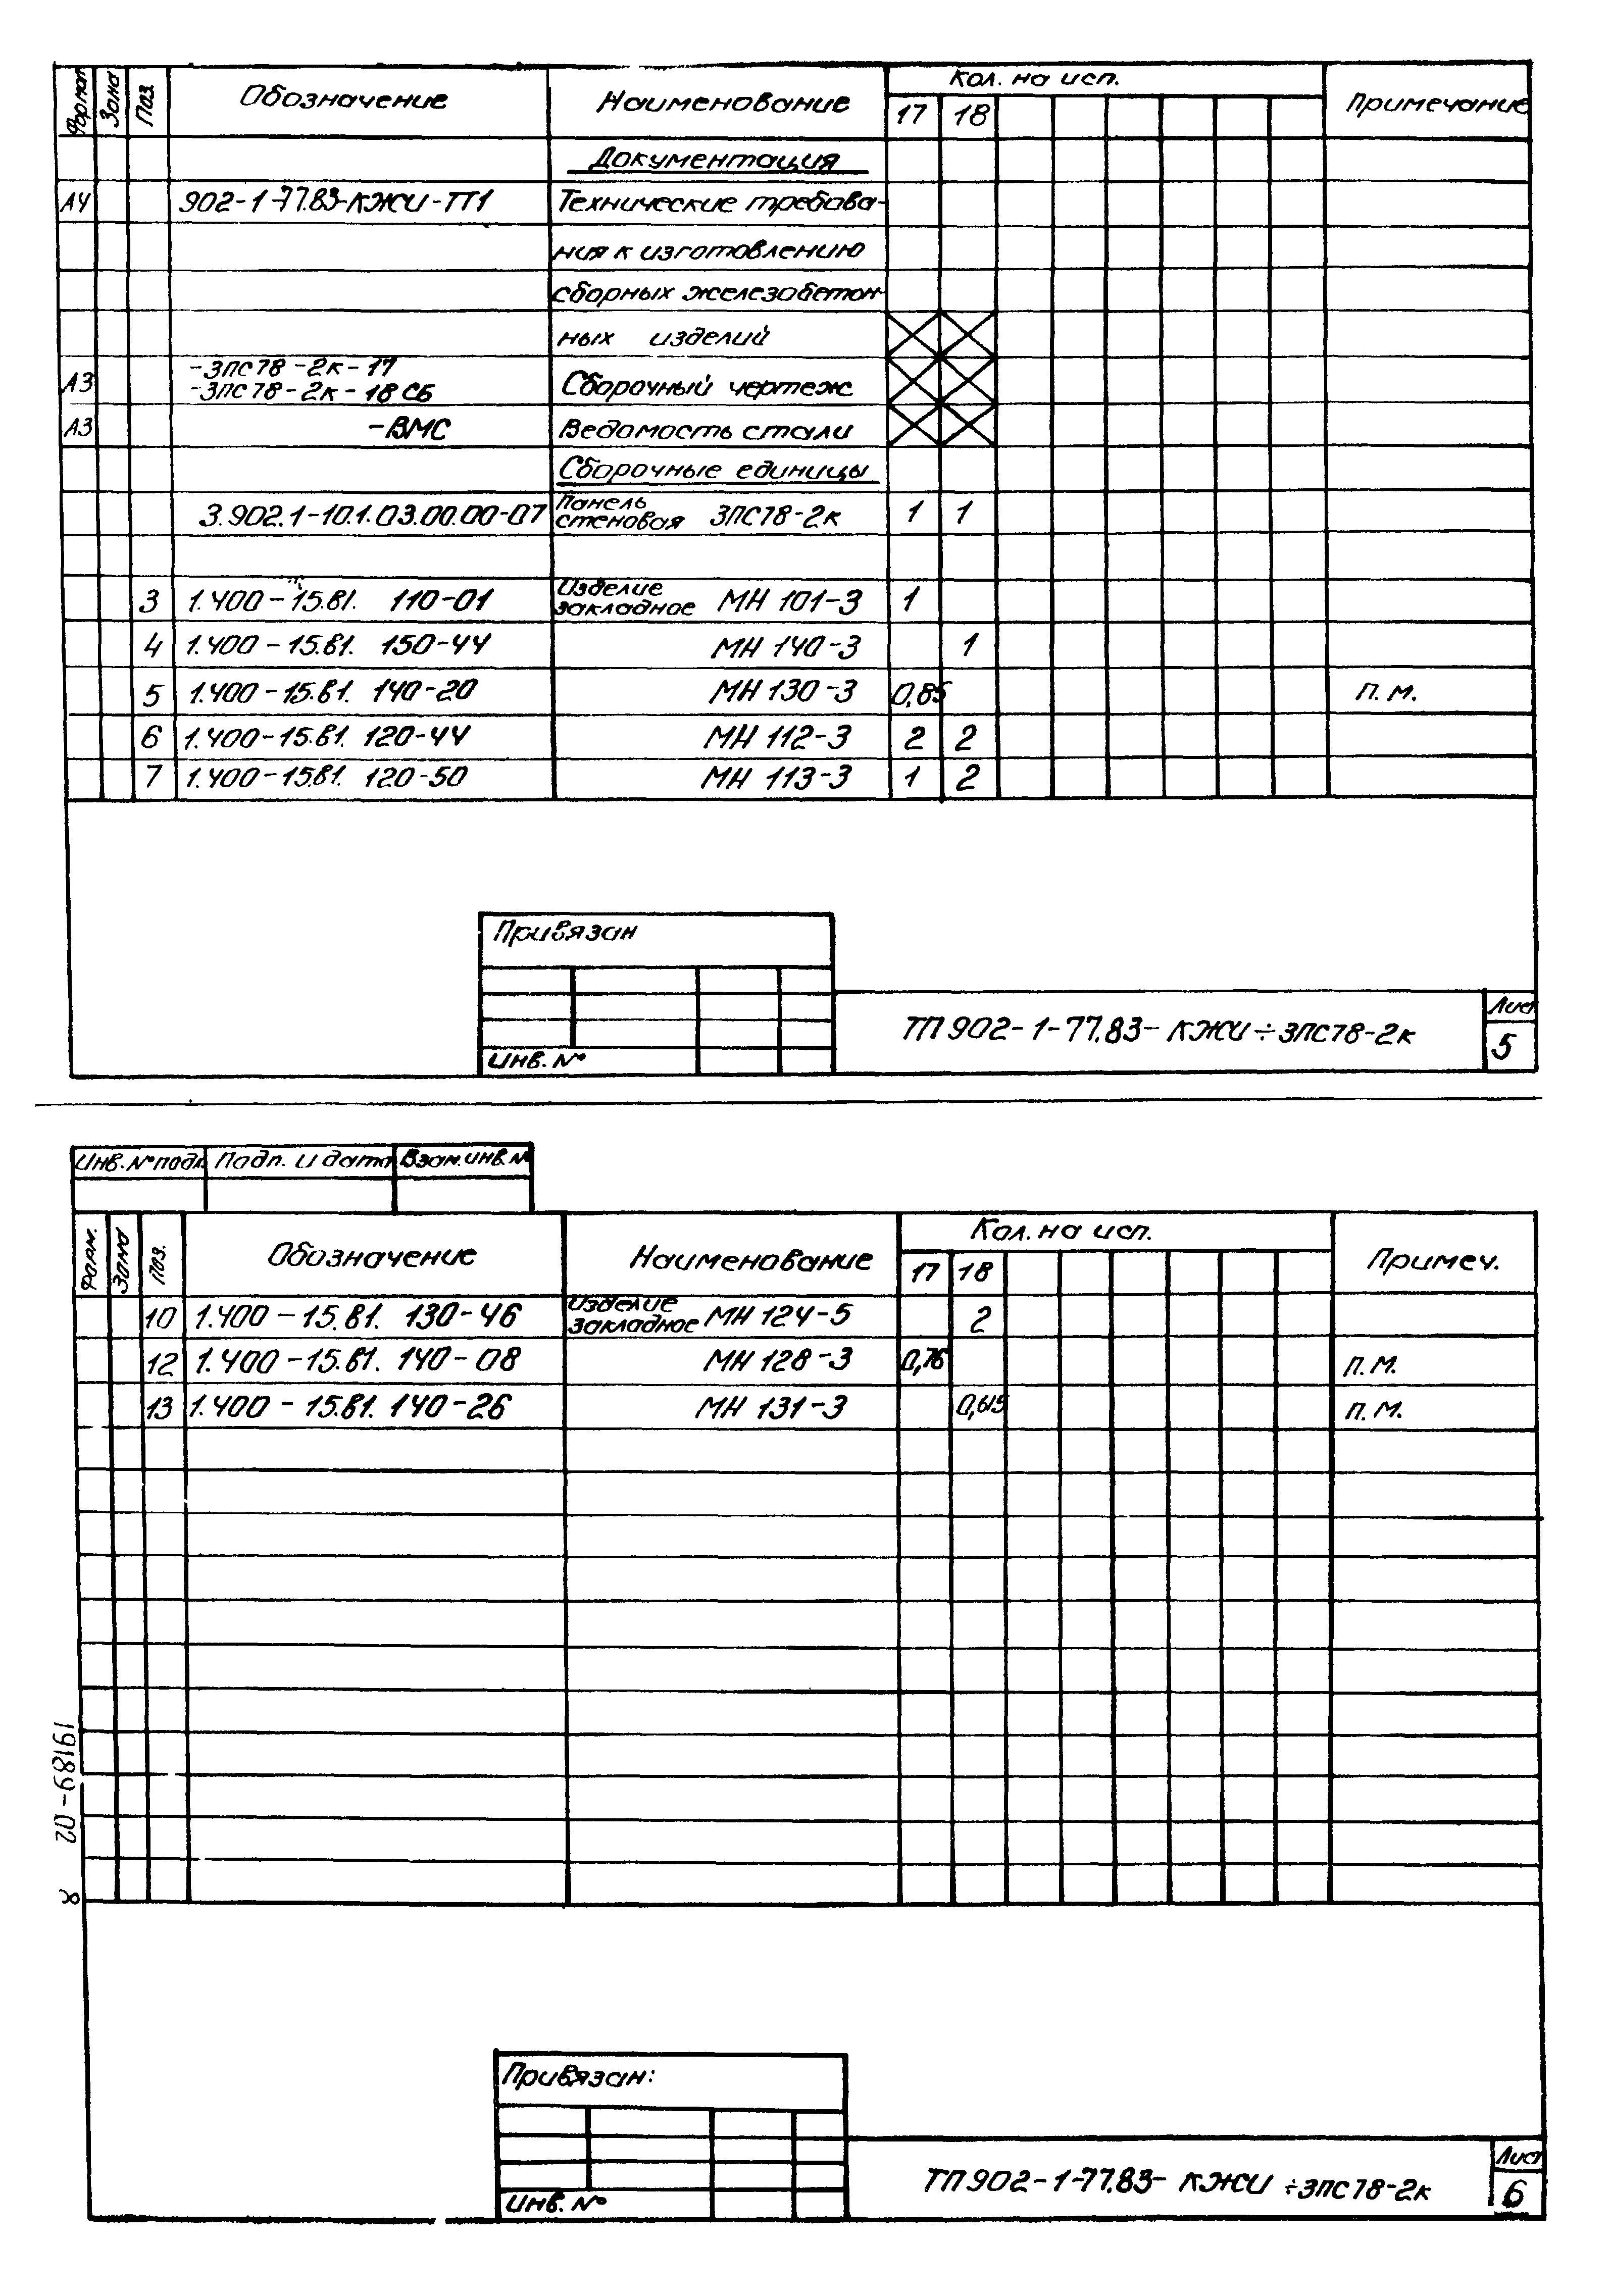 Формат Зона Поз. Обозначение Наименование Кол. на исп. Примечание
17 18
Документация
А4 902-1-77.83-КЖИ-ТТ1 Технические требова-
ния к изготовлению
сборных железобетон-
ных изделий
-3ПС78-2к-17
А3 -3ПС78-2к-18СБ Сборочный чертеж
А3 -ВМС Ведомость стали
Сборочные единицы
3.902.1-10.1.03.00.00-07 Панель стеновая 3ПС78-2к 1 1
3 1.400-15.В1. 110-01 Изделие закладное МН 101-3 1
4 1.400-15.В1. 150-44 МН 140-3 1
5 1.400-15.В1. 140-20 МН 130-3 0,85 п.м.
6 1.400-15.В1. 120-44 МН 112-3 2 2
7 1.400-15.В1. 120-50 МН 113-3 1 2
Привязан
Инв. №
ТП 902-1-77.83-КЖИ÷3ПС78-2к
Лист
5
Инв. № подл. Подп. и дата Взам. инв. №
Форм. Зона Поз. Обозначение Наименование Кол. на исп. Примеч.
17 18
10 1.400-15.В1. 130-46 Изделие закладное МН 124-5 2
12 1.400-15.В1. 140-08 МН 128-3 0,76 п.м.
13 1.400-15.В1. 140-26 МН 131-3 0,615 п.м.
19189-02 8
Привязан:
Инв. №
ТП 902-1-77.83-КЖИ÷3ПС78-2к
Лист
6